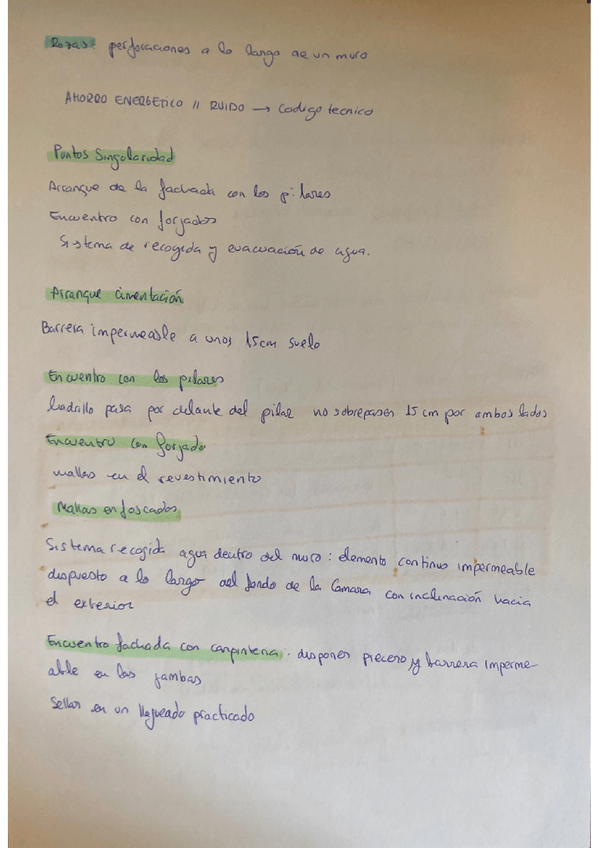 Rozas: perforaciones a lo largo de un muro
AHORRO ENERGETICO // RUIDO → Codigo tecnico
Puntos Singularidad
Arranque de la fachada con los pilares
Encuentro con forjados
Sistema de recogida y evacuación de agua.
Arranque cimentación
Barrera impermeable a unos 15cm suelo
Encuentro con los pilares
ladrillo pasa por delante del pilar no sobrepasen 15 cm por ambos lados
Encuentro con forjado
mallas en el revestimiento
Mallas enfoscados
Sistema recogida agua dentro del muro: elemento continuo impermeable
dispuesto a lo largo del fondo de la Camara con inclinación hacia
el exterior
Encuentro fachada con carpinteria: disponer precerco y barrera imperme-
able en las jambas
Sellar en un llagueado practicado